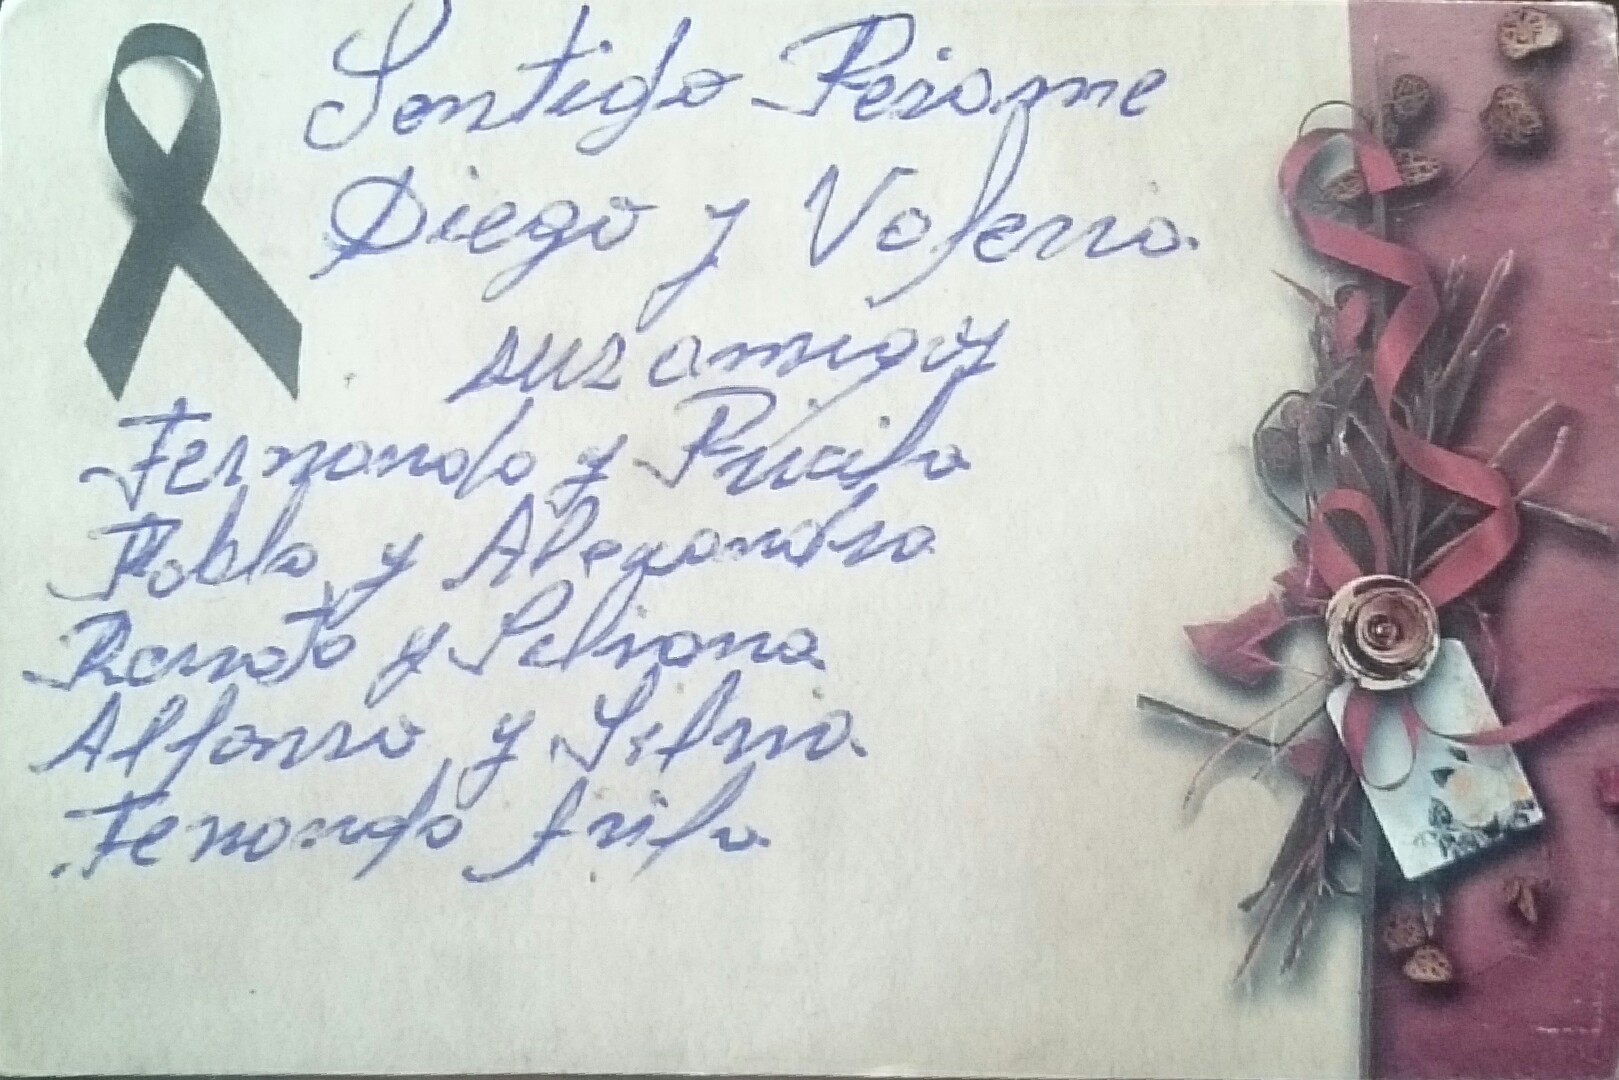 Sentido Pesame
Diego y Valeria
sus amigos
Fernando y Pricila
Pablo y Alegandra
Renato y Liliana
Alfonso y Silvia
Fernando